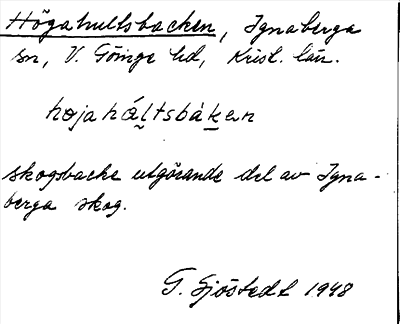 Högahultsbacken, Ignaberga
sn, V. Göinge hd, Krist. län.
högahåltsbáken
skogsbacke utgörande del av Igna-
berga skog.
G. Sjöstedt 1948